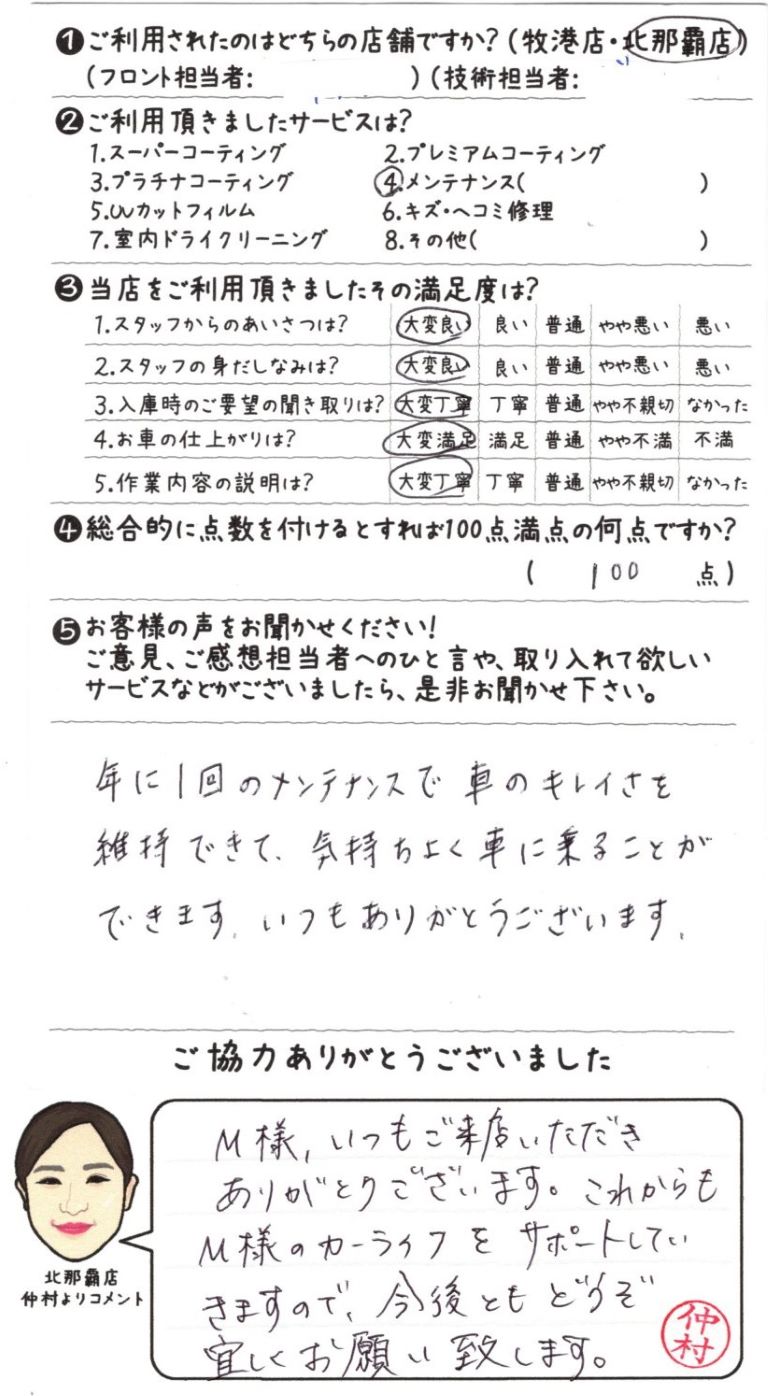 ❶ご利用されたのはどちらの店舗ですか?(牧港店・北那覇店)
(フロント担当者: )(技術担当者:
❷ご利用頂きましたサービスは?
1.スーパーコーティング 2.プレミアムコーティング
3.プラチナコーティング 4.メンテナンス( )
5.UVカットフィルム 6.キズ・ヘコミ修理
7.室内ドライクリーニング 8.その他( )
❸当店をご利用頂きましたその満足度は?
1.スタッフからのあいさつは? 大変良い 良い 普通 やや悪い 悪い
2.スタッフの身だしなみは? 大変良い 良い 普通 やや悪い 悪い
3.入庫時のご要望の聞き取りは? 大変丁寧 丁寧 普通 やや不親切 なかった
4.お車の仕上がりは? 大変満足 満足 普通 やや不満 不満
5.作業内容の説明は? 大変丁寧 丁寧 普通 やや不親切 なかった
❹総合的に点数を付けるとすれば100点満点の何点ですか?
( 100 点)
❺お客様の声をお聞かせください!
ご意見、ご感想担当者へのひと言や、取り入れて欲しい
サービスなどがございましたら、是非お聞かせ下さい。
年に1回のメンテナンスで車のキレイさを
維持できて、気持ちよく車に乗ることが
できます。いつもありがとうございます。
ご協力ありがとうございました
M様、いつもご来店いただき
ありがとうございます。これからも
M様のカーライフをサポートしてい
きますので、今後ともどうぞ
宜しくお願い致します。
仲村
北那覇店
仲村よりコメント